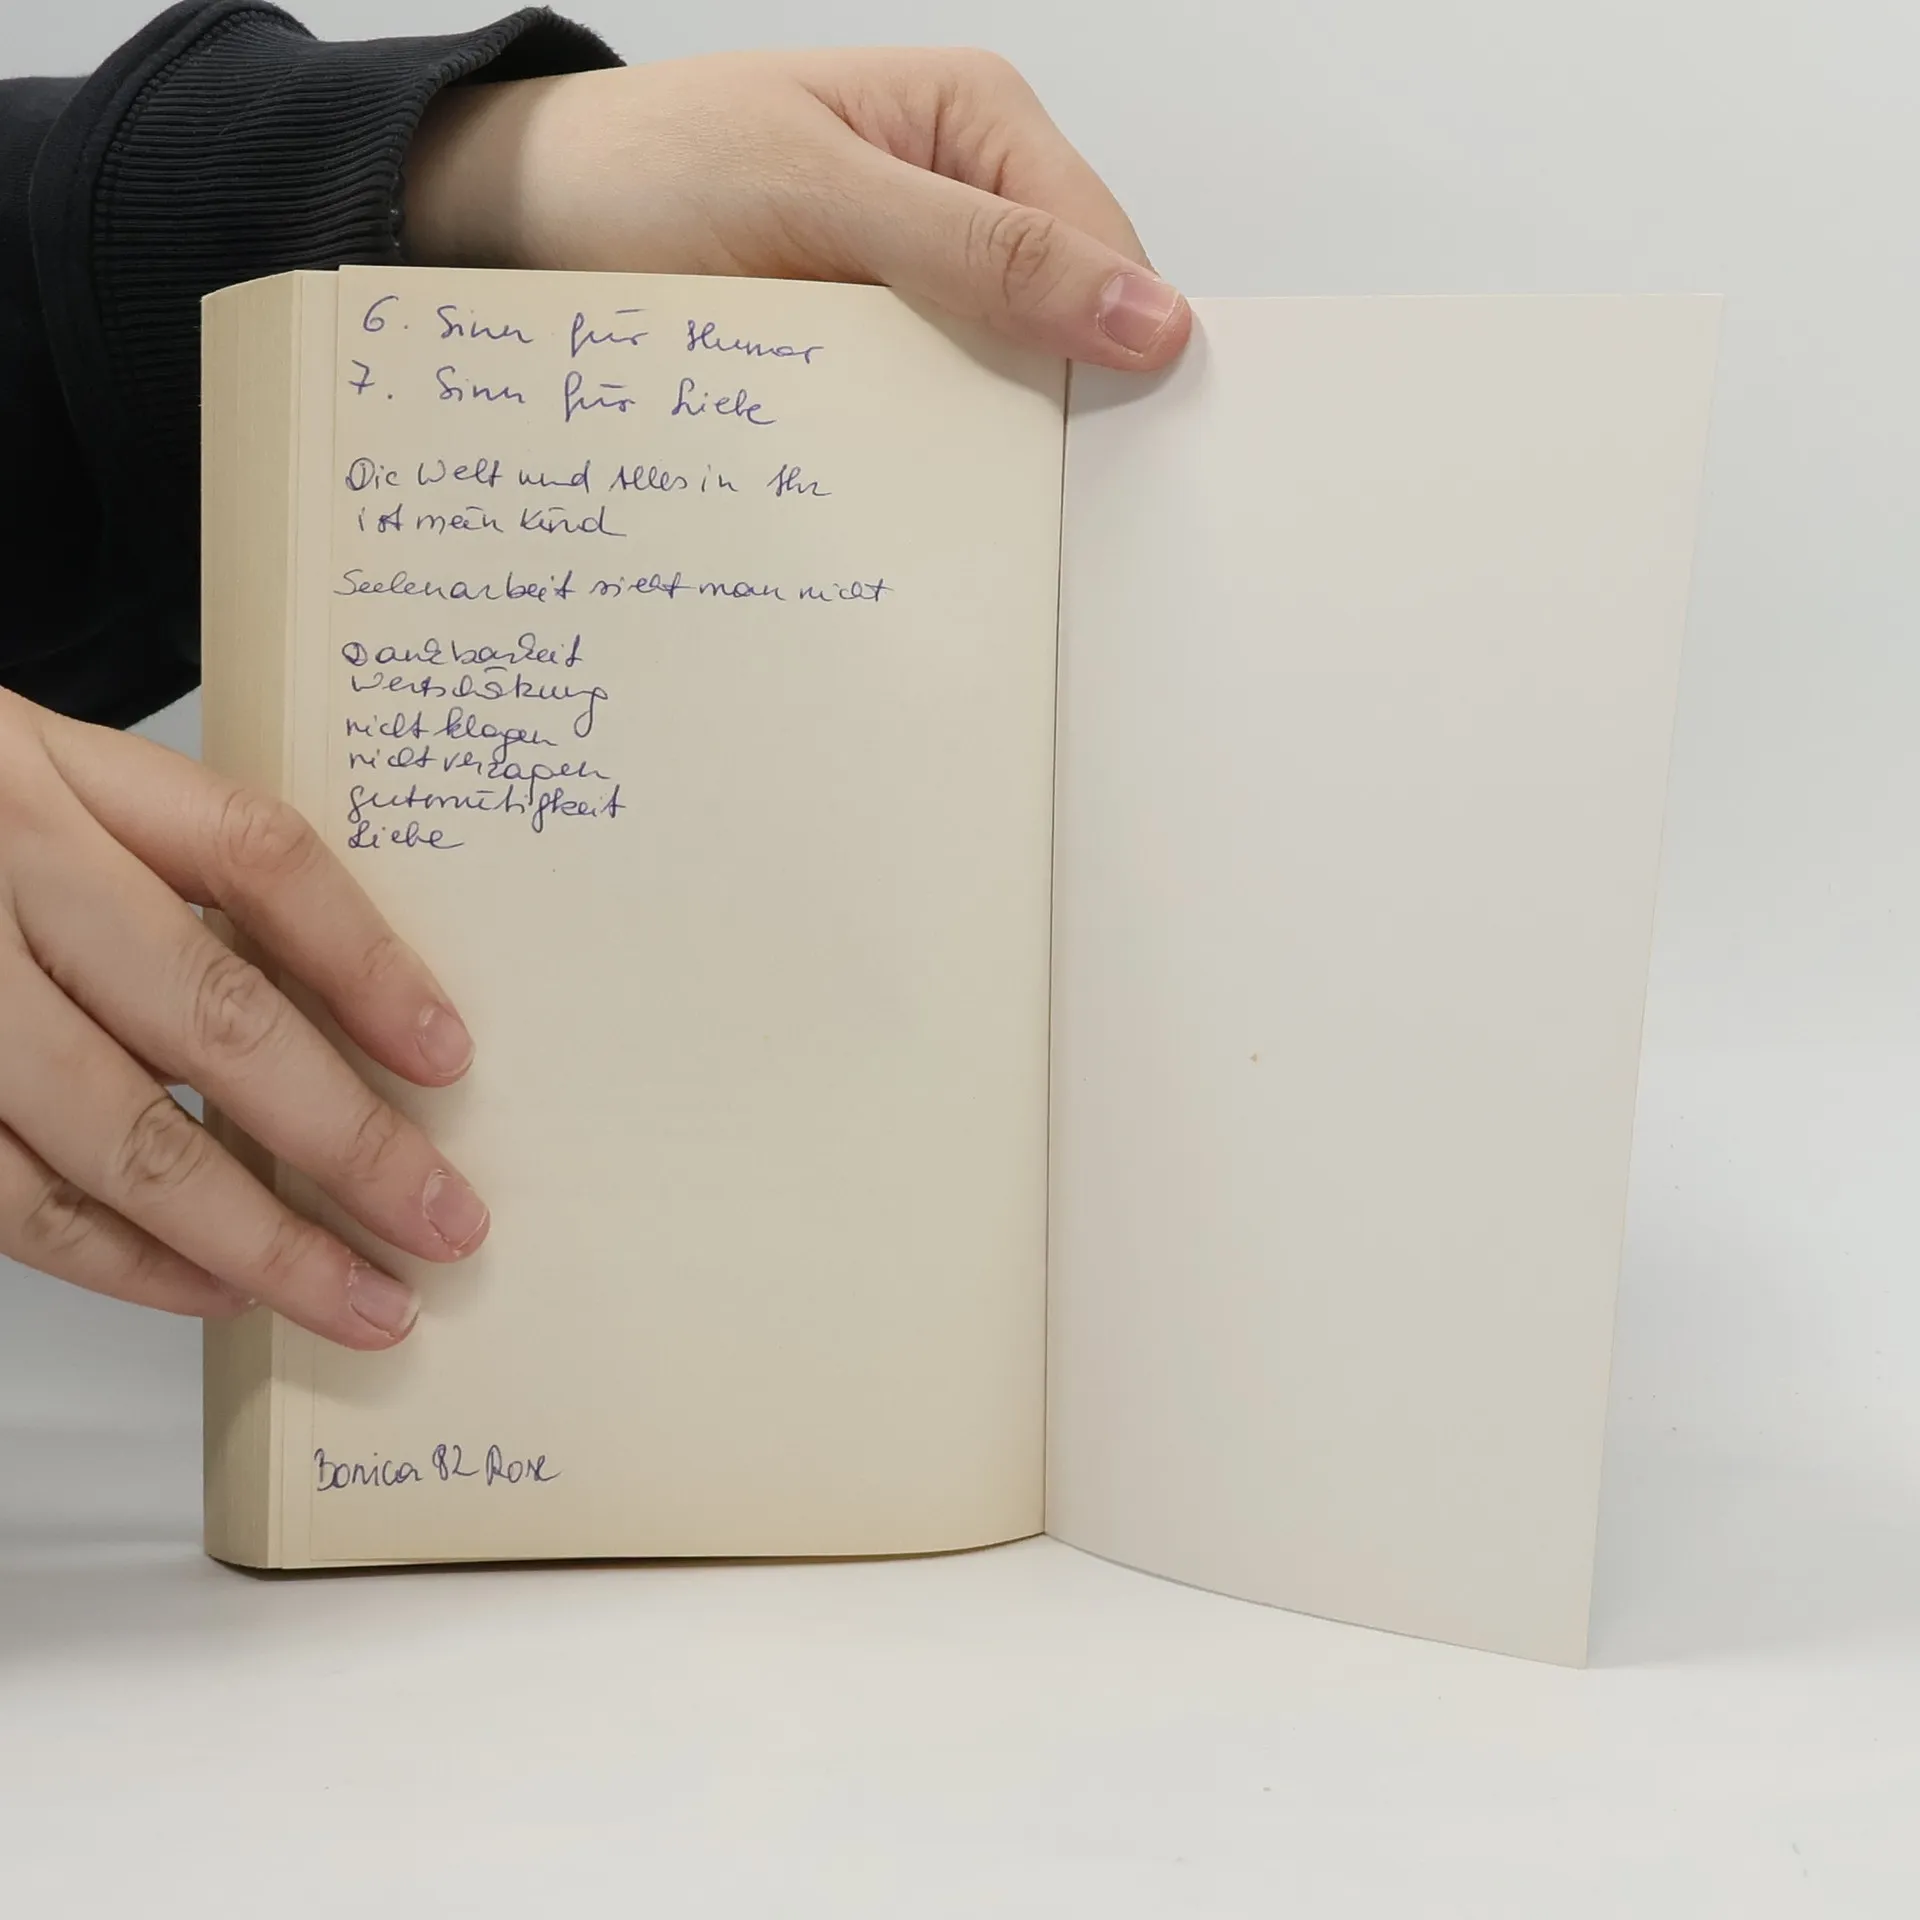 6. Sinn für Humor
7. Sinn für Liebe
Die Welt und Alles in Ihr
ist mein Kind
Seelenarbeit sieht man nicht
Dankbarkeit
Wertschätzung
nicht klagen
nicht verzagen
gutmütigkeit
Liebe
Bonica 82 Rose